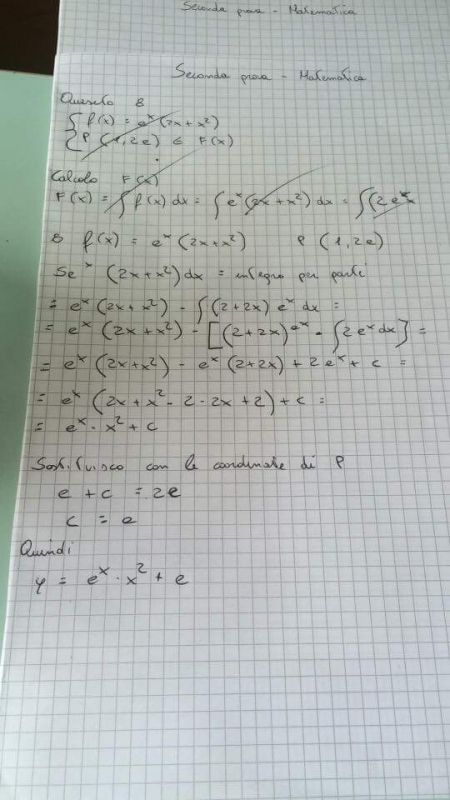 Seconda prova - Matematica
Seconda prova - Matematica
Quesito 8
f(x) = eˣ (2x + x²)
P (1, 2e) ∈ F(x)
Calcolo F(x)
F(x) = ∫ f(x) dx = ∫ eˣ (2x + x²) dx = ∫ (2 eˣ
8 f(x) = eˣ (2x + x²) P (1, 2e)
∫ eˣ (2x + x²) dx = integro per parti
= eˣ (2x + x²) - ∫ (2 + 2x) eˣ dx =
= eˣ (2x + x²) - [(2 + 2x) eˣ - ∫ 2 eˣ dx] =
= eˣ (2x + x²) - eˣ (2 + 2x) + 2 eˣ + c =
= eˣ (2x + x² - 2 - 2x + 2) + c =
= eˣ · x² + c
Sostituisco con le coordinate di P
e + c = 2e
c = e
Quindi
y = eˣ · x² + e